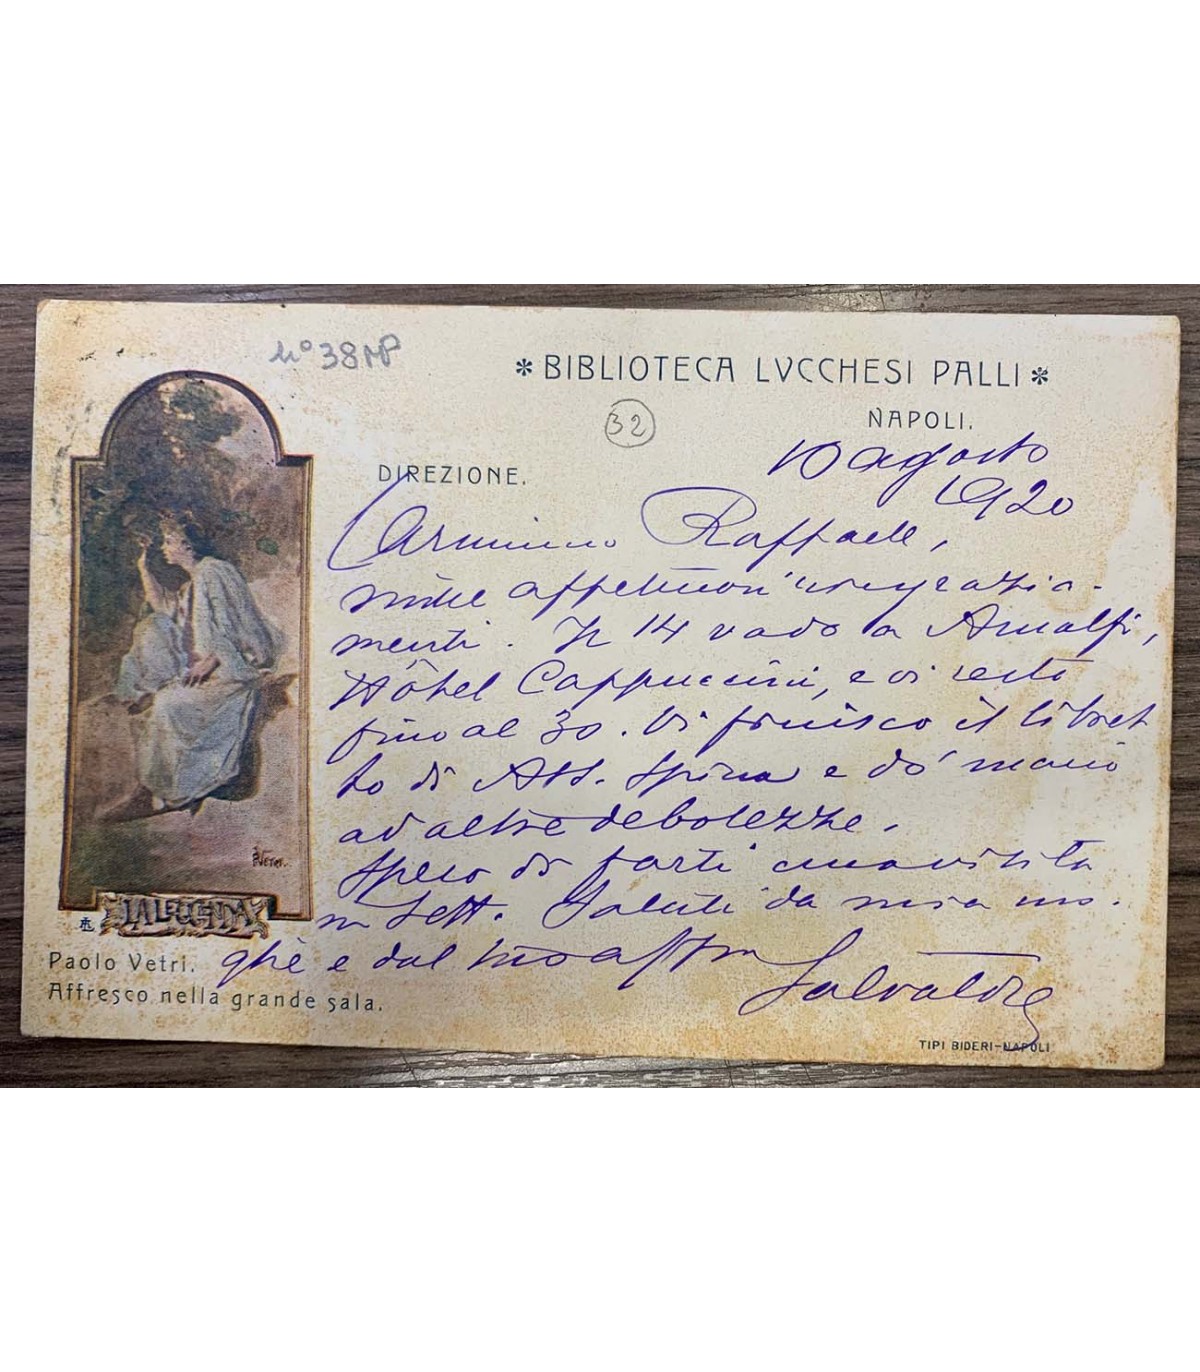 n° 38 MP
* BIBLIOTECA LVCCHESI PALLI *
NAPOLI.
32
DIREZIONE.
10 agosto
1920
Carissimo Raffaele,
mille affettuosi ringrazia-
menti. Il 14 vado a Amalfi,
Hôtel Cappuccini, e vi resto
fino al 30. Vi finisco il libret
to di Ass. Spina e do' mano
ad altre debolezze.
Spero di farti una visita
in Sett. Saluti da mia mo-
glie e dal tuo aff.mo
Salvatore
P. Vetri.
LA LEGGENDA
Paolo Vetri.
Affresco nella grande sala.
TIPI BIDERI-NAPOLI